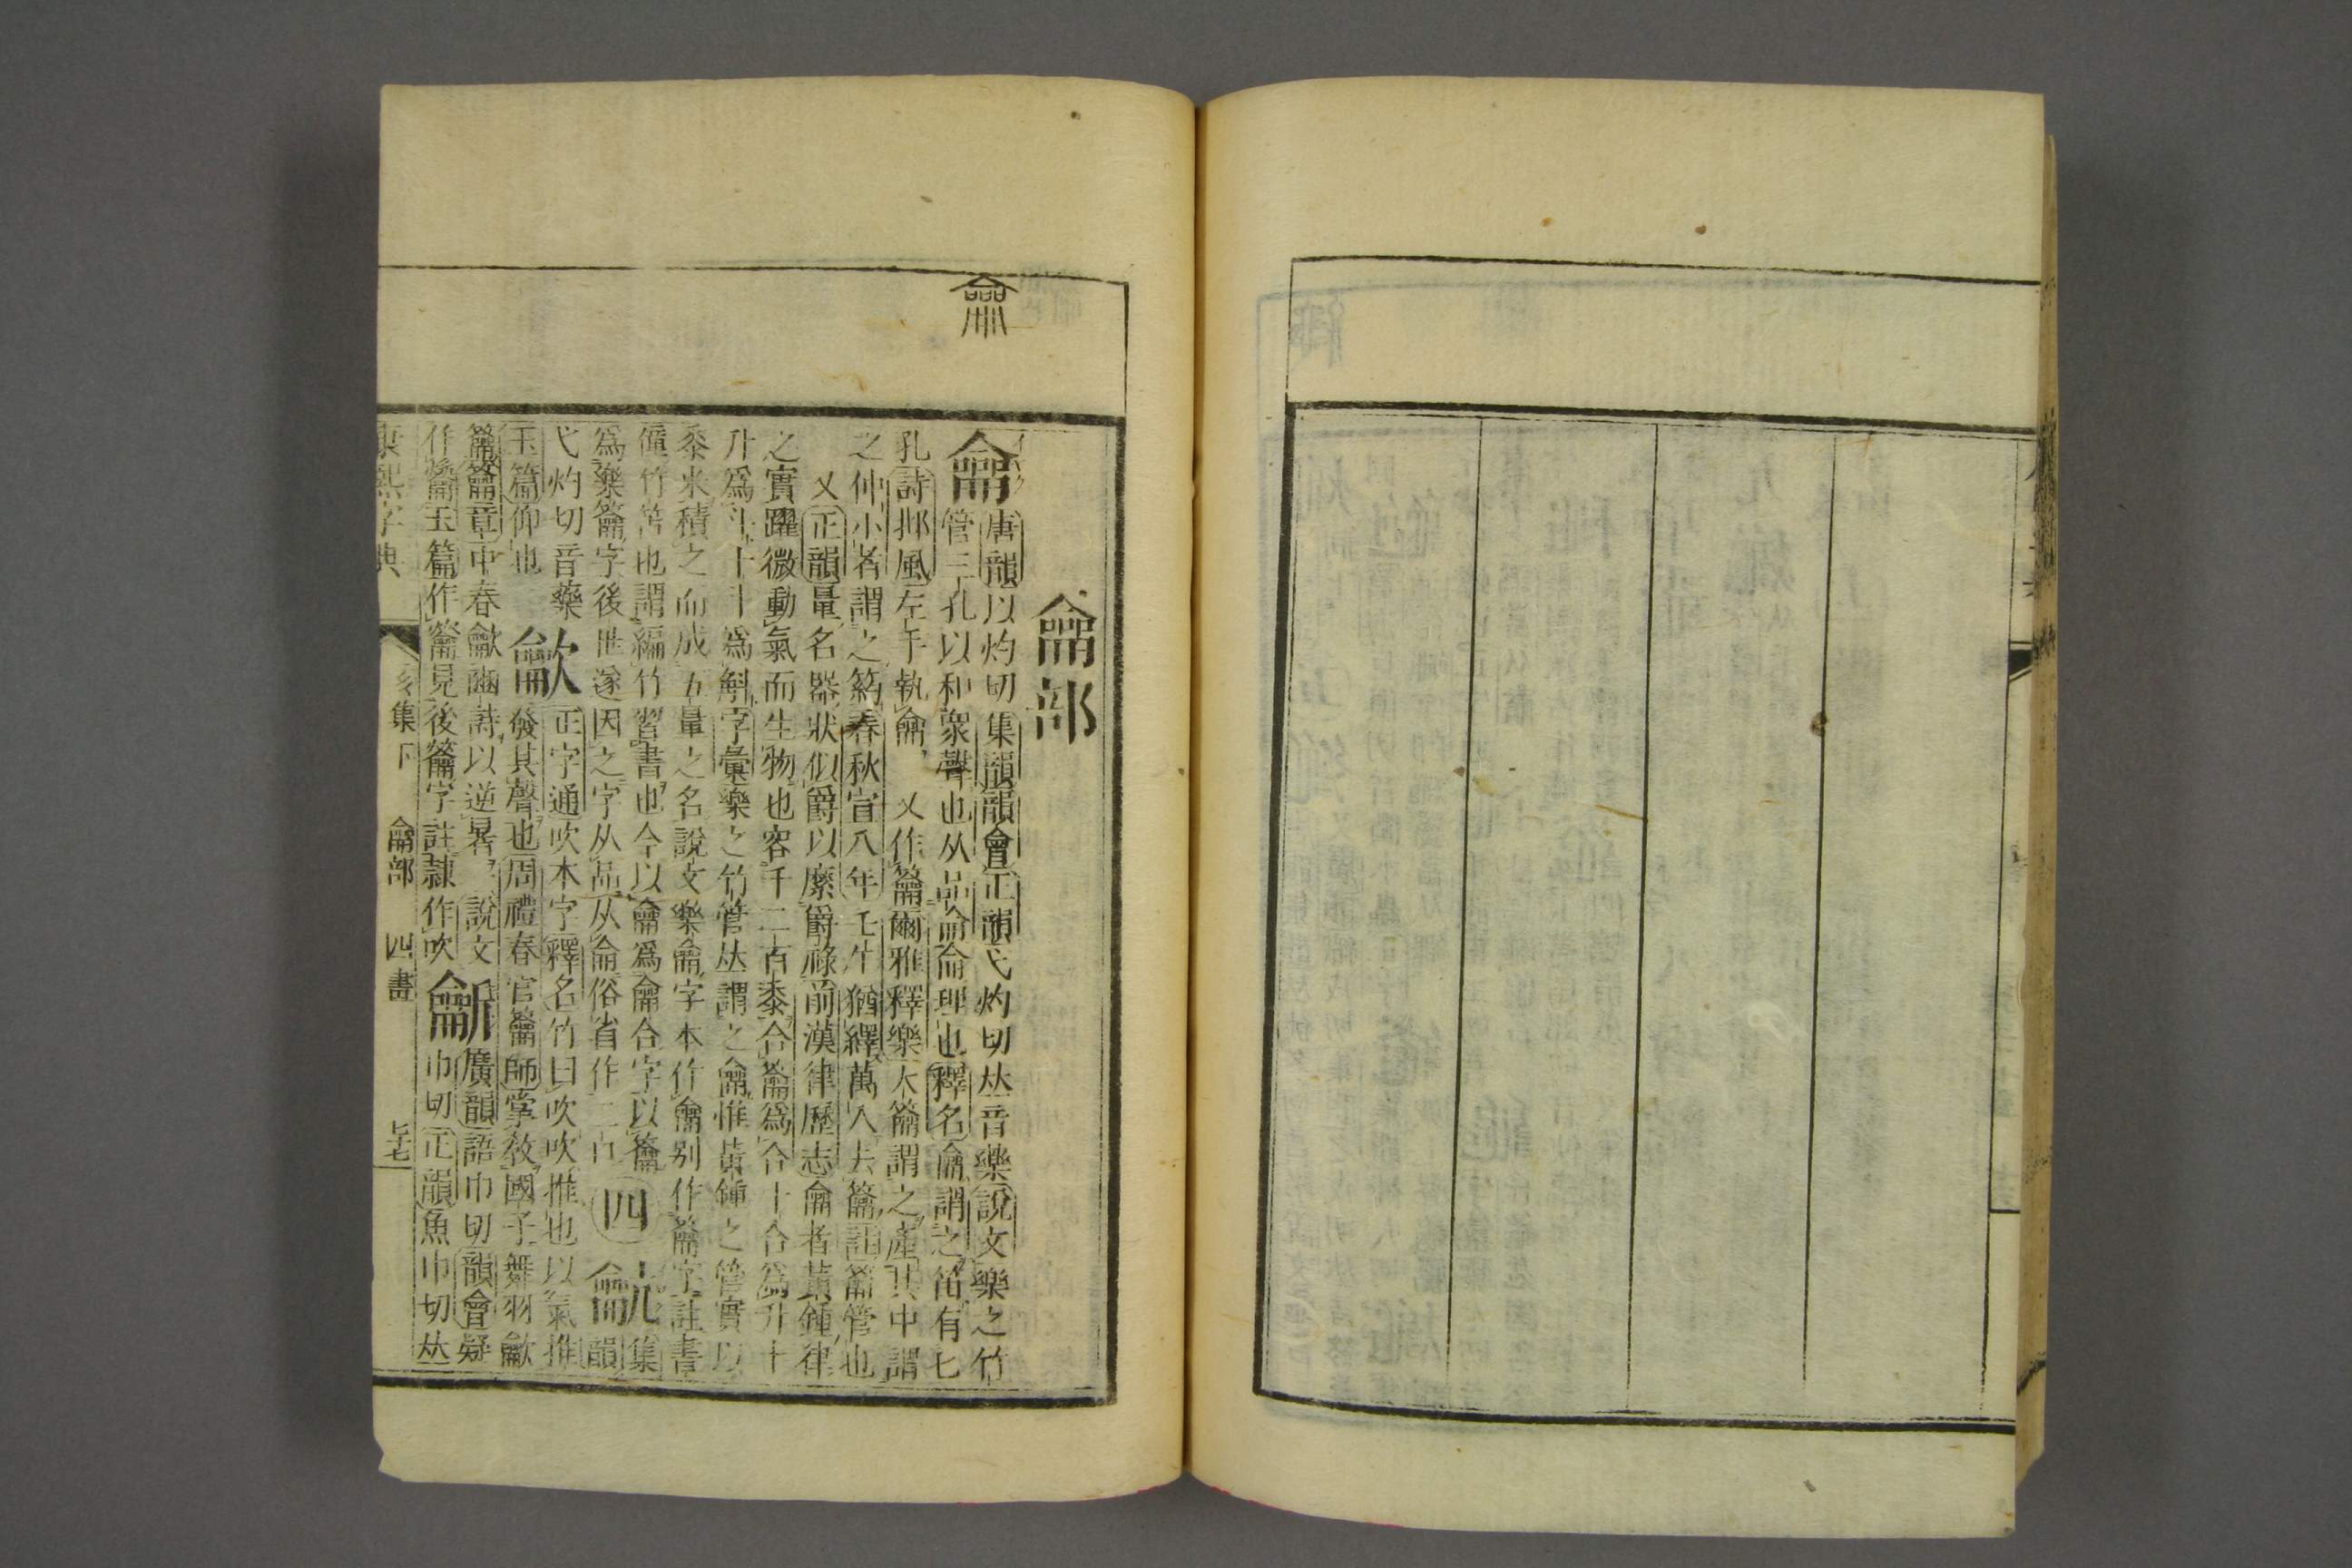 龠部
龠唐韻以灼切集韻韻會正韻弋灼切𠀤音樂說文樂之竹
管三孔以和衆聲也从品侖侖理也釋名龠謂之笛有七
孔詩邶風左手執龠 又作籥爾雅釋樂大籥謂之產其中謂
之仲小者謂之箹春秋宣八年壬午猶繹萬入去籥註籥管也
又正韻量名器狀似爵以縻爵祿前漢律歷志龠者黃鍾律
之實躍微動氣而生物也容千二百黍合龠爲合十合爲升十
升爲斗十斗爲斛字彙樂之竹管𠀤謂之龠惟黃鍾之管實以
黍米積之而成五量之名說文樂龠字本作龠別作籥字註書
僮竹笘也謂編竹習書也今以龠爲龠合字以籥
爲樂籥字後世遂因之字从品从侖俗省作二口 四 龡集韻
弋灼切音藥 龡正字通吹本字釋名竹曰吹吹推也以氣推
發其聲也周禮春官籥師掌敎國子舞羽龡
玉篇仰也
籥籥章中春龡豳詩以逆暑 說文
作龡玉篇作籥見後籥字註隸作吹 龂廣韻語巾切韻會疑
巾切正韻魚巾切𠀤
康熙字典 亥集下 龠部 四畫